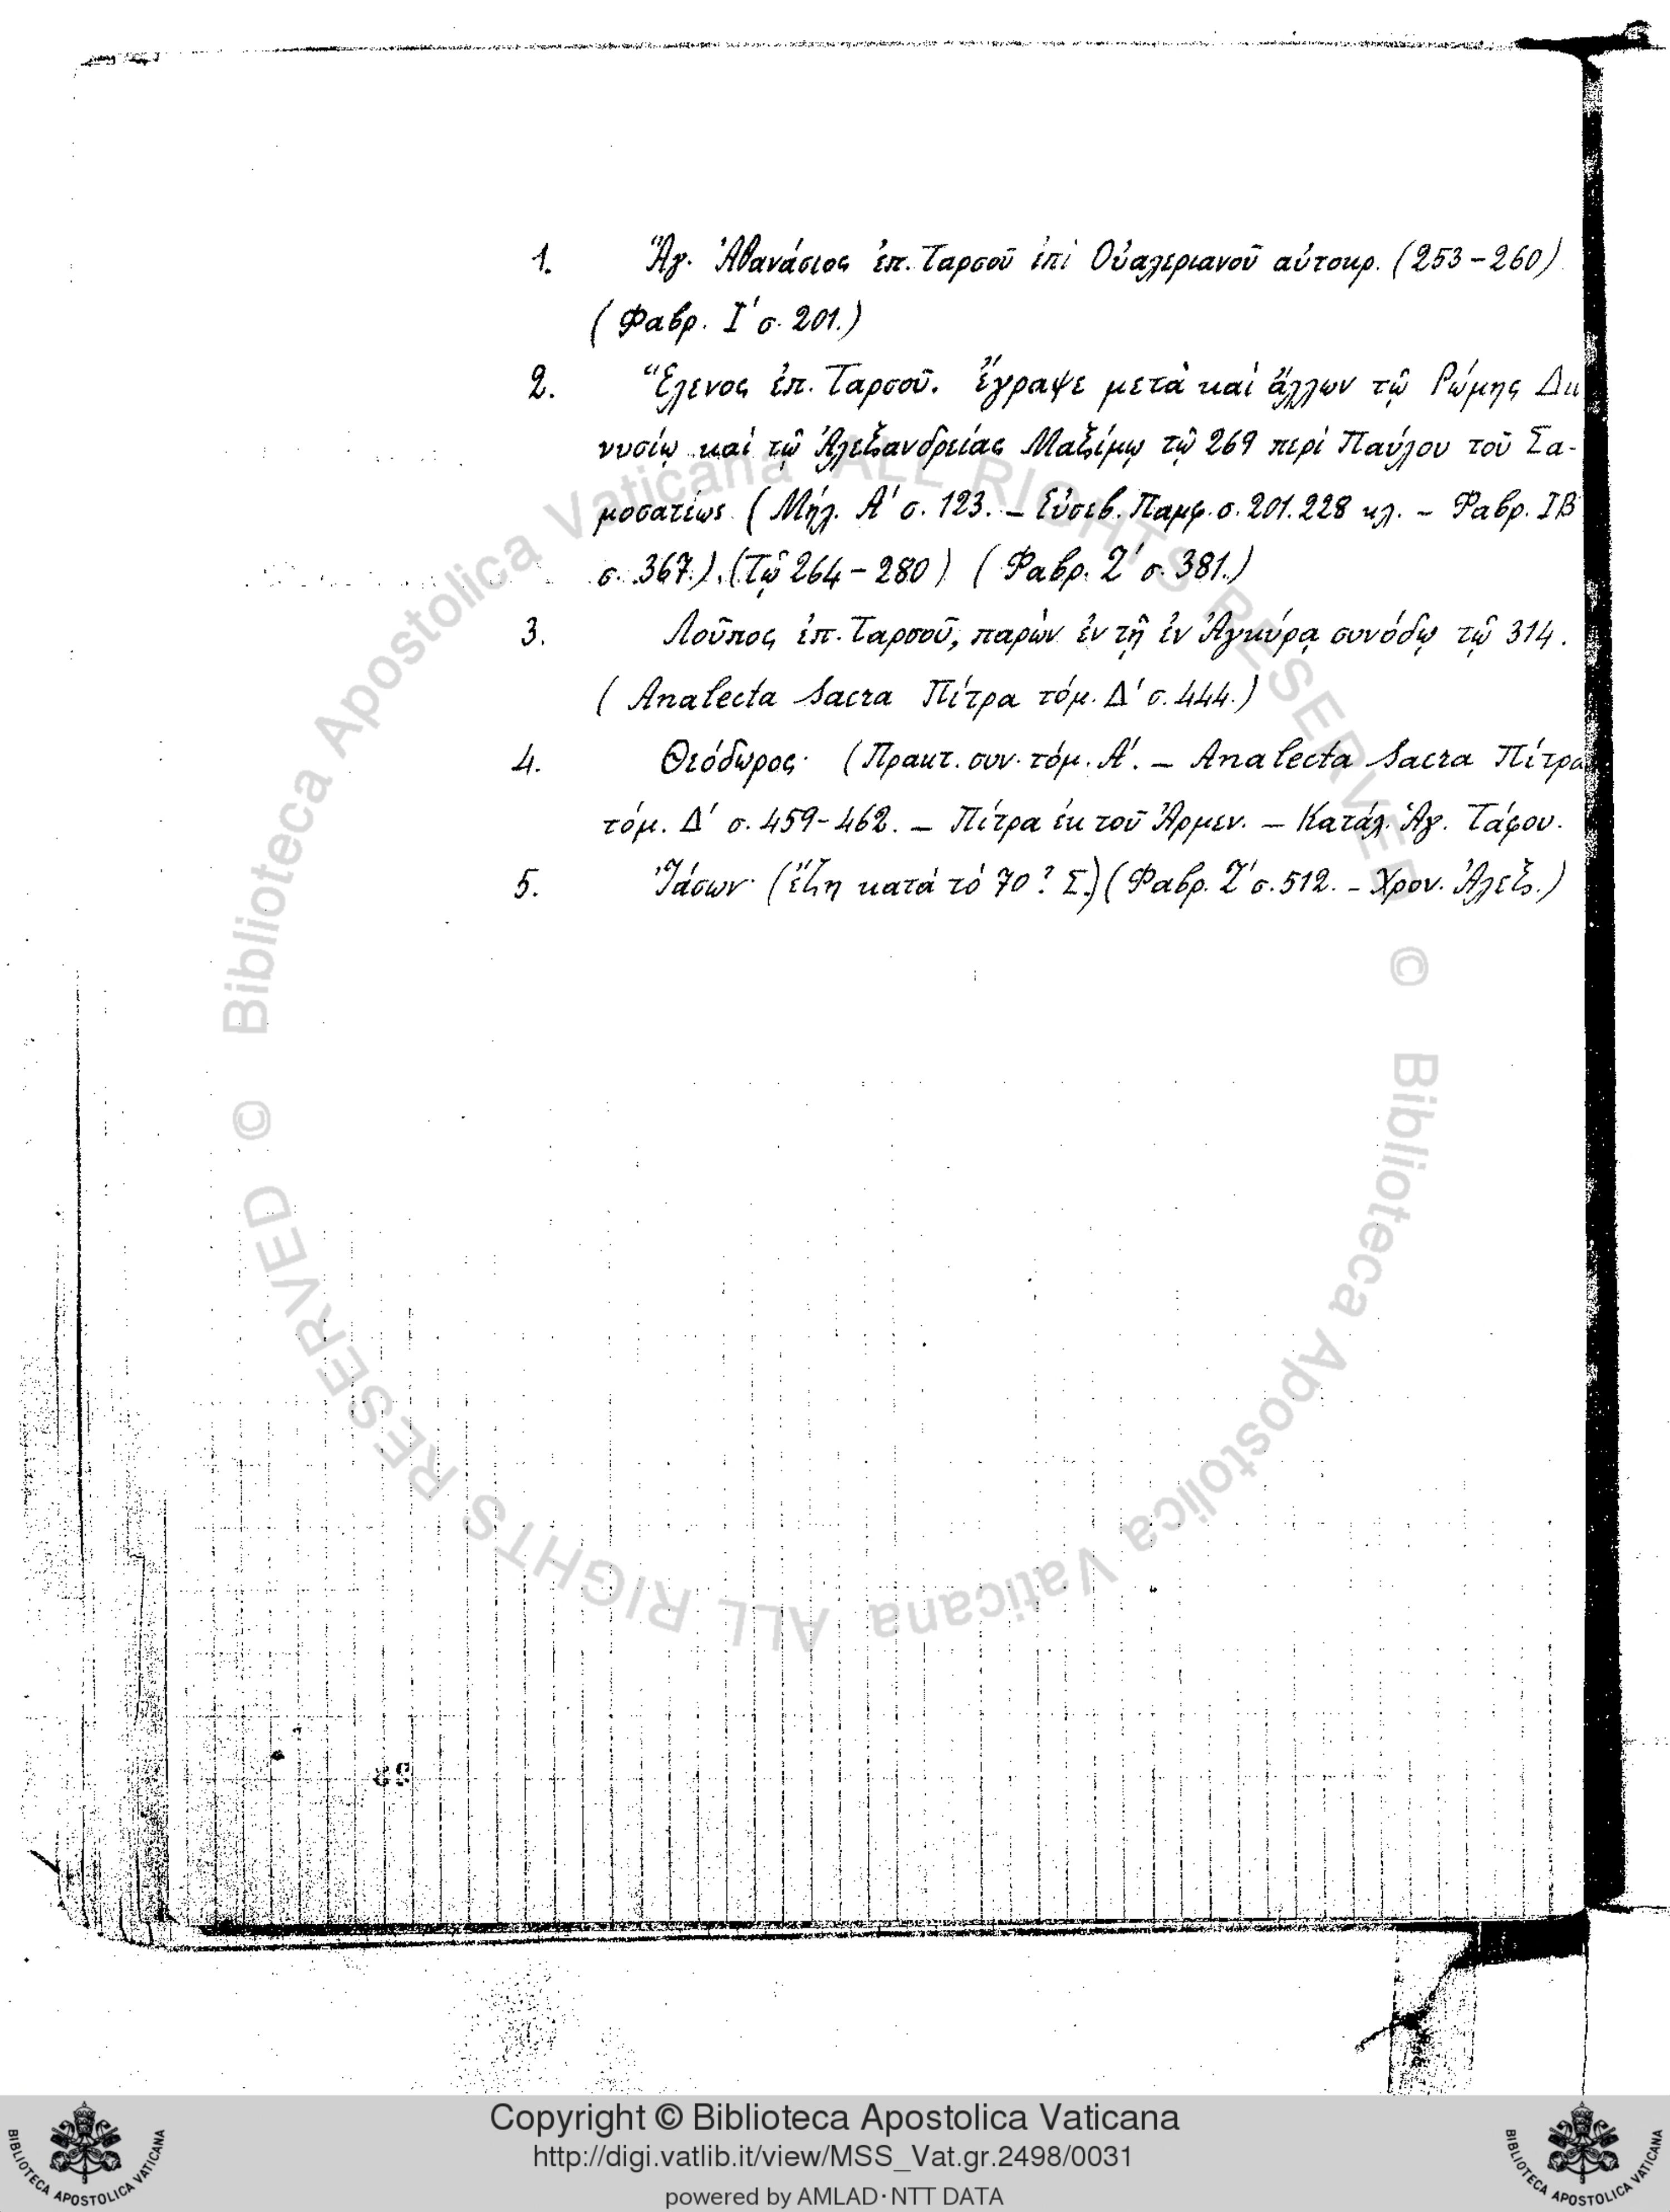 1. Ἅγ. Ἀθανάσιος ἐπ. Ταρσοῦ ἐπὶ Οὐαλεριανοῦ αὐτοκρ. (253-260)
(Φαβρ. Ι' σ. 201.)
2. Ἕλενος ἐπ. Ταρσοῦ. ἔγραψε μετὰ καὶ ἄλλων τῷ Ῥώμης Διο
νυσίῳ καὶ τῷ Ἀλεξανδρείας Μαξίμῳ τῷ 269 περὶ Παύλου τοῦ Σα-
μοσατέως (Μήλ. Α' σ. 123. – Εὐσεβ. Παμφ. σ. 201. 228 κλ. – Φαβρ. ΙΒ
σ. 367.). (Τῷ 264-280) (Φαβρ. Ζ' σ. 381.)
3. Λοῦπος ἐπ. Ταρσοῦ, παρὼν ἐν τῇ ἐν Ἀγκύρᾳ συνόδῳ τῷ 314.
(Analecta Sacra Πίτρα τόμ. Δ' σ. 444.)
4. Θεόδωρος· (Πρακτ. συν. τόμ. Α'. – Analecta Sacra Πίτρα
τόμ. Δ' σ. 459-462. – Πίτρα ἐκ τοῦ Ἀρμεν. – Κατάλ. Ἁγ. Τάφου.
5. Ἰάσων· (ἔζη κατὰ τὸ 70? Σ.) (Φαβρ. Ζ' σ. 512. – Χρον. Ἀλεξ.)
Biblioteca Apostolica Vaticana ALL RIGHTS RESERVED ©
Biblioteca Apostolica Vaticana ALL RIGHTS RESERVED ©
BIBLIOTECA APOSTOLICA VATICANA
Copyright © Biblioteca Apostolica Vaticana
http://digi.vatlib.it/view/MSS_Vat.gr.2498/0031
powered by AMLAD·NTT DATA
BIBLIOTECA APOSTOLICA VATICANA